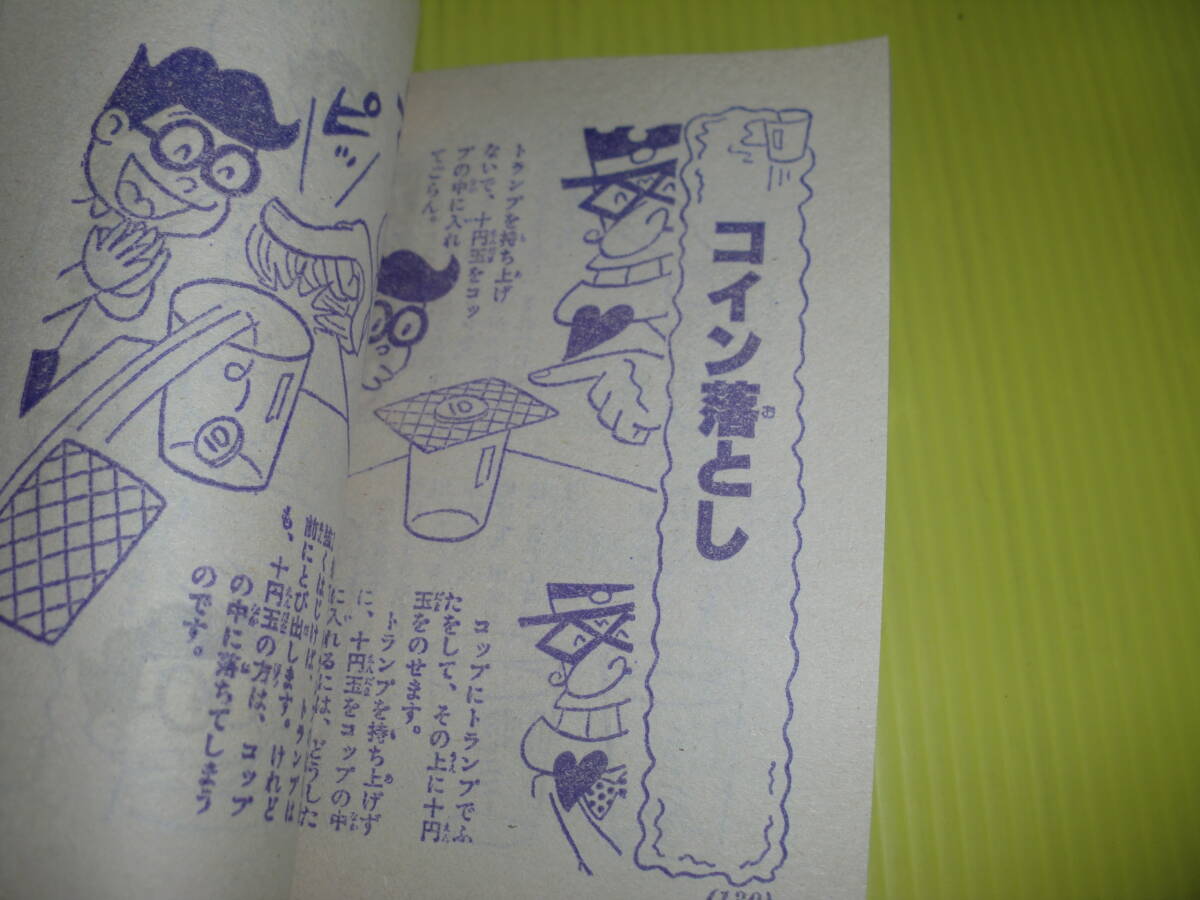 コイン落とし
トランプを持ち上げ
ないで、十円玉をコッ
プの中に入れ
てごらん。
コップにトランプでふ
たをして、その上に十円
玉をのせます。
トランプを持ち上げず
に、十円玉をコップの中
に入れるには、どうした
くはじけば、トランプは
前にとび出します。けれど
も、十円玉の方は、コップ
の中に落ちてしまう
のです。
ピッ
10
10
(130)